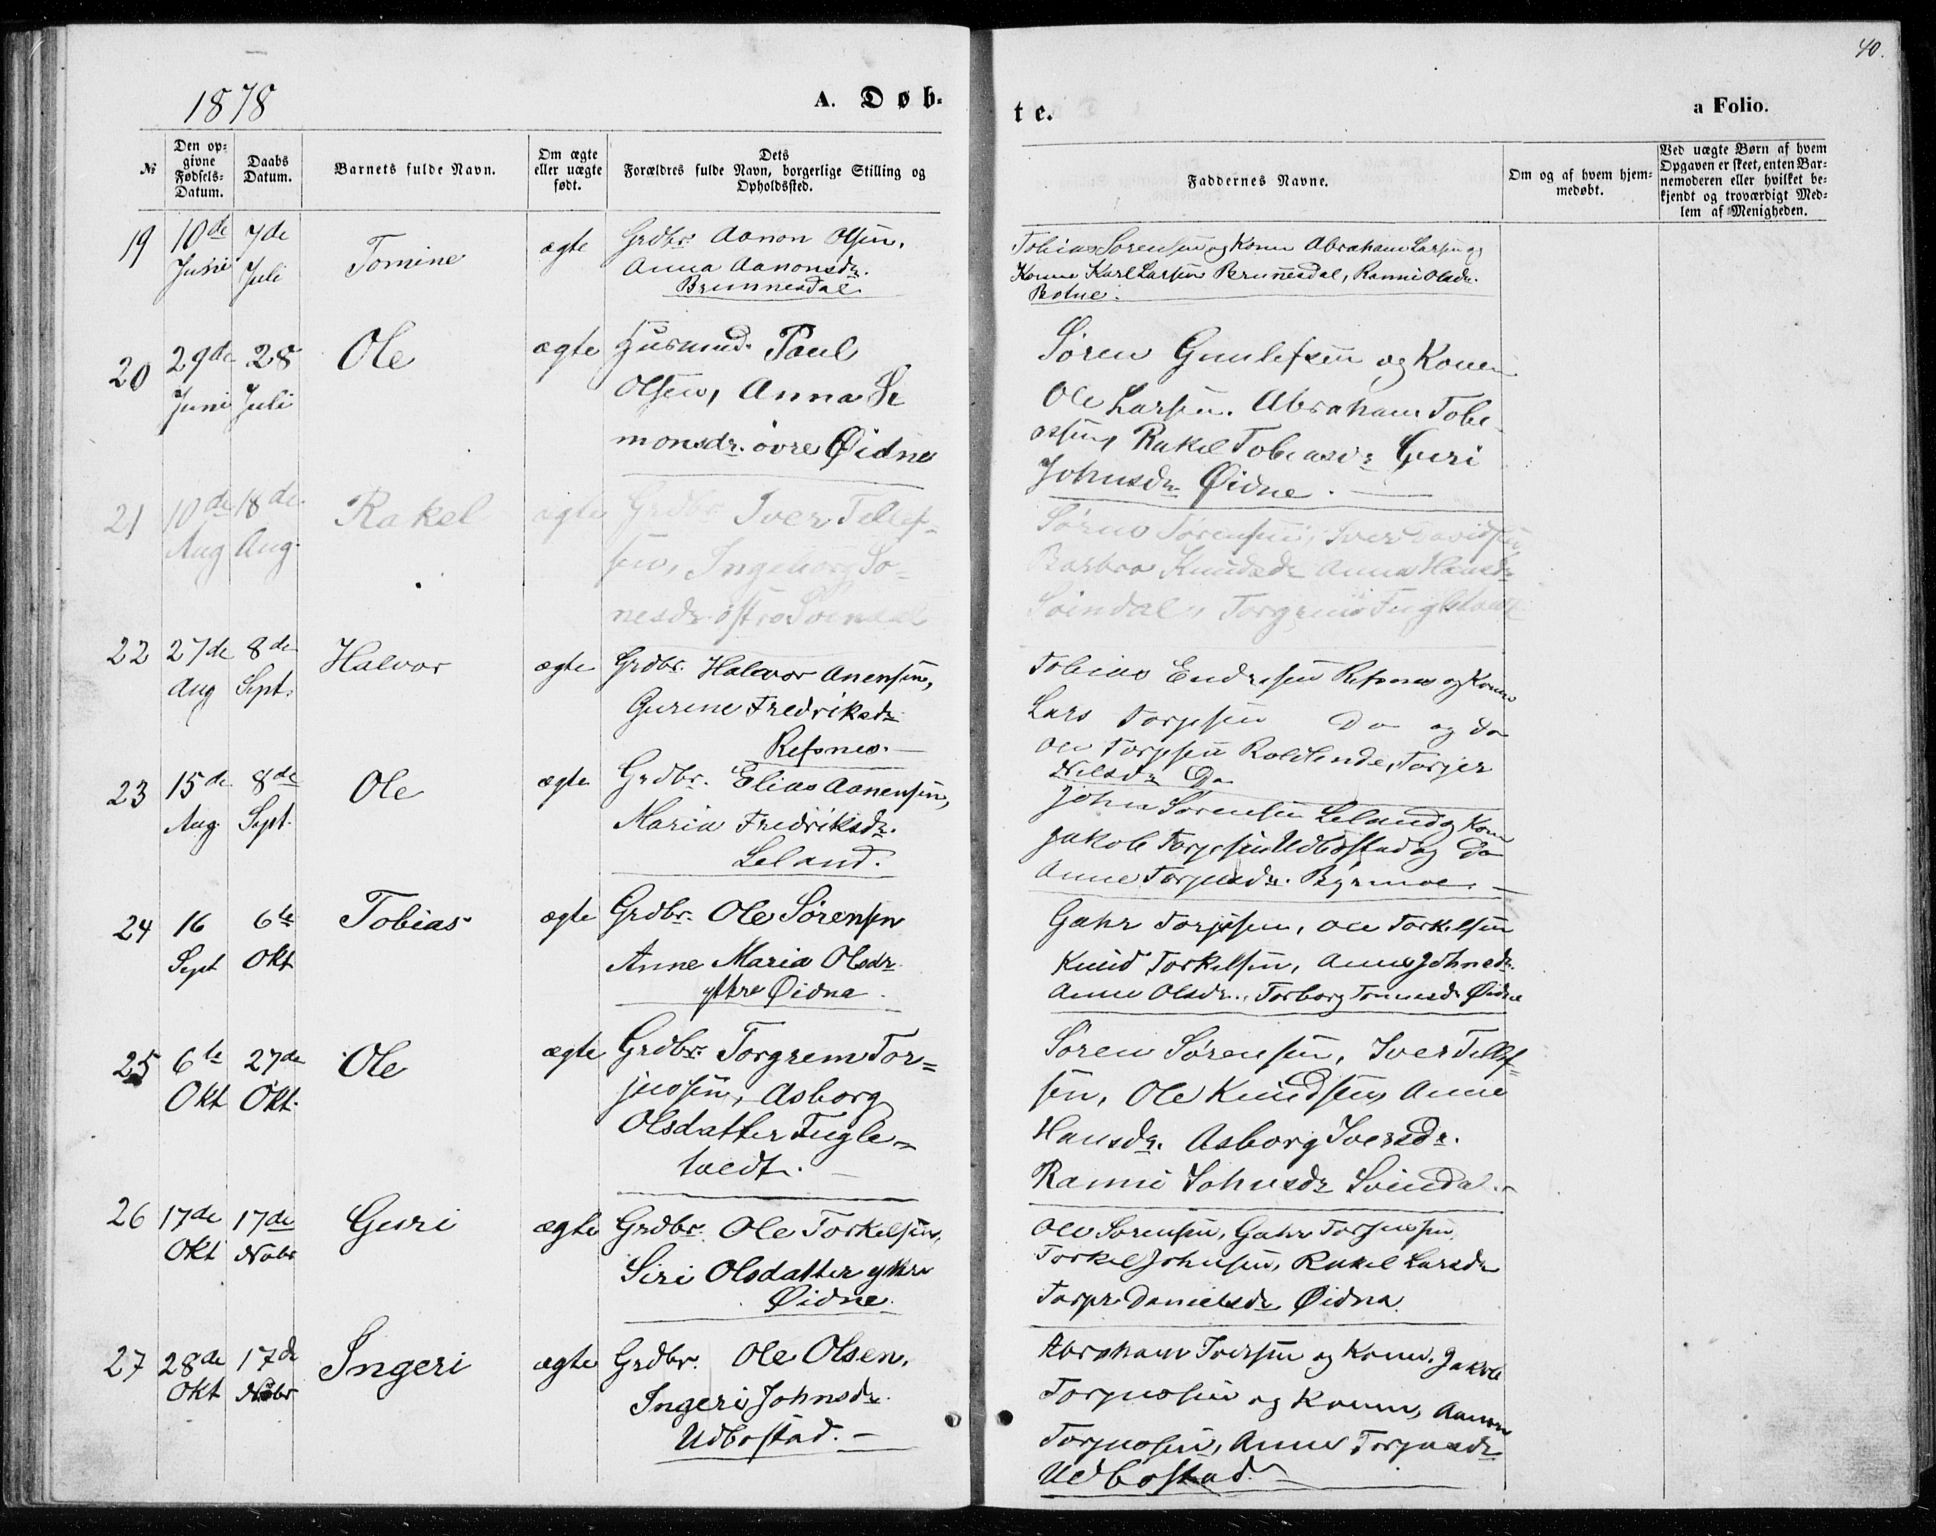 40.
1878
A. Døb-
te.
a Folio.
№
Den op-
givne
Fødsels-
Datum.
Daabs
Datum.
Barnets fulde Navn.
Om ægte
eller uægte
født.
Dets
Forældres fulde Navn, borgerlige Stilling og
Opholdssted.
Faddernes Navne.
Om og af hvem hjem-
medøbt.
Ved uægte Børn af hvem
Opgaven er skeet, enten Bar-
nemoderen eller hvilket be-
kjendt og troværdigt Med-
lem af Menigheden.
19
10de
Juni
7de
Juli
Tomine
ægte
Grdbr. Aanon Olsen,
Anna Aanonsdr.
Brunnesdal
Tobias Sørensen og Kone Abraham Larsen og
Kone Karl Larsen Brunesdal, Ranni Olsdr.
20
29de
Juni
28
Juli
Ole
ægte
Husmd. Paul
Olsen, Anna Si
monsdr. øvre Øidne
Søren Gunlefsen og Kone
Ole Larsen. Abraham Tobi
assen, Rakel Tobiasdr Guri
Johnsdr Øidne.
21
10de
Aug
18de
Aug.
Rakel
ægte
Grdbr Iver Tellef-
sen, Ingeborg Sø-
nesdr østre Svindal
Søren Sørensen, Iver Davidsen
Barbro Knudsdr Anna Hansdr
Svindal, Torgrim Fugletvedt
22
27de
Aug
8de
Sept.
Halvor
ægte
Grdbr. Halvor Anensen,
Gurine Fredriksdr
Refsnes.
Tobias Endresen Refsnes og Kone
Lars Torjesen Do og do
Ole Torjesen Rolilende, Torjer
Nilsdr Do
23
15de
Aug.
8de
Sept.
Ole
ægte
Grdbr. Elias Aanensen,
Maria Fredriksdr.
Leland.
John Sørensen Leland og Kone
Jakob Torjesen Udbøstad og Do
Anne Torjusdr. Byrmoe.
24
16
Sept
6te
Okt
Tobias
ægte
Grdbr. Ole Sørensen
Anne Maria Olsdr
yttre Øidna.
Gahr Torjesen, Ole Torkelsen
Knud Torkelsen, Anne Johnsdr.
Anne Olsdr., Torborg Tomesdr Øidne
25
6te
Okt
27de
Okt.
Ole
ægte
Grdbr. Torgrem Tor-
juosen, Asborg
Olsdatter Fugle-
tvedt.
Søren Sørensen, Iver Tellef-
sen, Ole Knudsen, Anne
Hansdr. Asborg Iversdr.
Ranni Johnsdr Svindal.
26
17de
Okt
17de
Nobr
Guri
ægte
Grdbr. Ole Torkelsen,
Siri Olsdatter yttre
Øidne.
Ole Sørensen, Gahr Torjusen
Torkel Johnsen, Rakel Larsdr
Torjer Danielsdr Øidna.
27
28de
Okt
17de
Nobr
Ingeri
ægte
Grdbr. Ole Olsen,
Ingeri Johnsdr.
Udbøstad.
Abraham Iversen og Kone, Jakob
Torjuosen og Kone, Aanon
Torjuosen, Anne Torjusdr
Udbøstad.